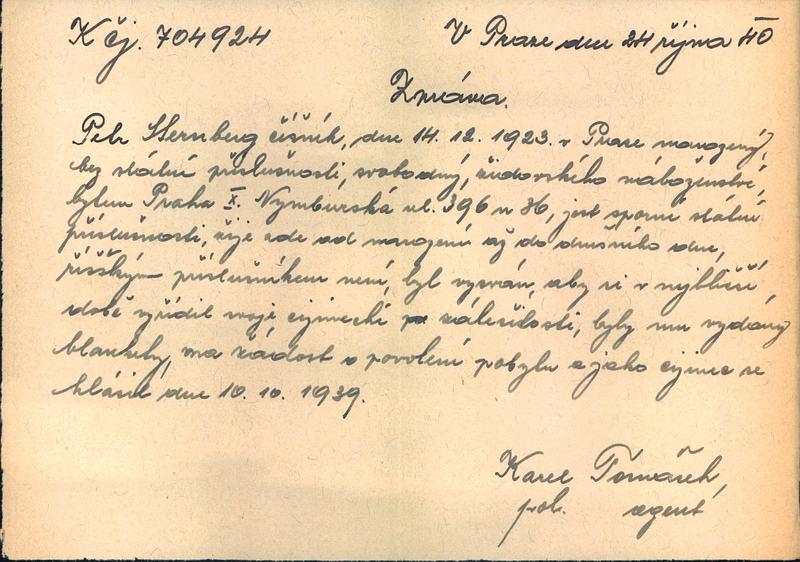 K čj. 704924
V Praze dne 24 října 40
Zpráva.
Petr Sternberg číšník, dne 14. 12. 1923. v Praze narozený,
bez státní příslušnosti, svobodný, židovského náboženství,
bytem Praha X. Nymburská ul. 396 n 36, jest sporné státní
příslušnosti, žije zde od narození až do dnešního dne,
říšským příslušníkem není, byl vyzván, aby si v nejbližší
době vyřídil svoje cizinecké záležitosti, byly mu vydány
blankety, na žádost o povolení pobytu a jako cizinec se
hlásil dne 10. 10. 1939.
Karel Tomášek,
pol. agent